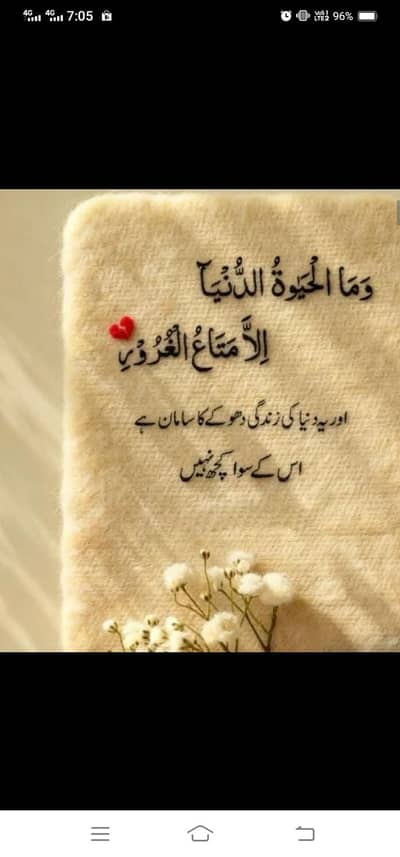 4G 4G 7:05 VoWiFi1 LTE2 96%
وَمَا الْحَيٰوةُ الدُّنْيَآ
اِلَّا مَتَاعُ الْغُرُوْرِ
اور یہ دنیا کی زندگی دھوکے کا سامان ہے
اس کے سوا کچھ نہیں